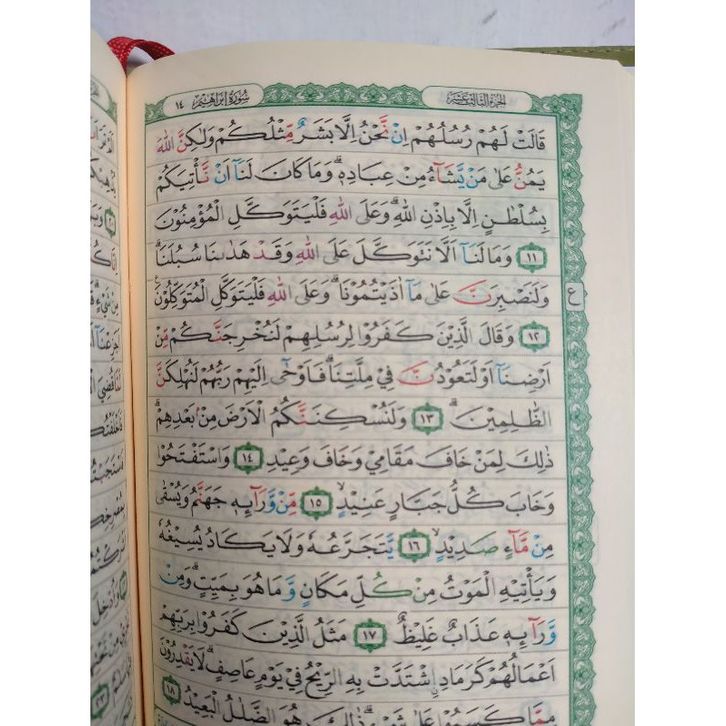 الجزء الثالث عشر
سورة ابراهيم ١٤
قَالَتْ لَهُمْ رُسُلُهُمْ اِنْ نَّحْنُ اِلَّا بَشَرٌ مِّثْلُكُمْ وَلٰكِنَّ اللّٰهَ
يَمُنُّ عَلٰى مَنْ يَّشَاۤءُ مِنْ عِبَادِهٖۗ وَمَا كَانَ لَنَآ اَنْ نَّأْتِيَكُمْ
بِسُلْطٰنٍ اِلَّا بِاِذْنِ اللّٰهِۗ وَعَلَى اللّٰهِ فَلْيَتَوَكَّلِ الْمُؤْمِنُوْنَ
١١ وَمَا لَنَآ اَلَّا نَتَوَكَّلَ عَلَى اللّٰهِ وَقَدْ هَدٰىنَا سُبُلَنَاۗ
وَلَنَصْبِرَنَّ عَلٰى مَآ اٰذَيْتُمُوْنَاۗ وَعَلَى اللّٰهِ فَلْيَتَوَكَّلِ الْمُتَوَكِّلُوْنَ
ع
١٢ وَقَالَ الَّذِيْنَ كَفَرُوْا لِرُسُلِهِمْ لَنُخْرِجَنَّكُمْ مِّنْ
اَرْضِنَآ اَوْ لَتَعُوْدُنَّ فِيْ مِلَّتِنَاۗ فَاَوْحٰٓى اِلَيْهِمْ رَبُّهُمْ لَنُهْلِكَنَّ
الظّٰلِمِيْنَۗ ١٣ وَلَنُسْكِنَنَّكُمُ الْاَرْضَ مِنْۢ بَعْدِهِمْۗ
ذٰلِكَ لِمَنْ خَافَ مَقَامِيْ وَخَافَ وَعِيْدِ ١٤ وَاسْتَفْتَحُوْا
وَخَابَ كُلُّ جَبَّارٍ عَنِيْدٍۙ ١٥ مِّنْ وَّرَاۤىِٕهٖ جَهَنَّمُ وَيُسْقٰى
مِنْ مَّاۤءٍ صَدِيْدٍۙ ١٦ يَّتَجَرَّعُهٗ وَلَا يَكَادُ يُسِيْغُهٗ
وَيَأْتِيْهِ الْمَوْتُ مِنْ كُلِّ مَكَانٍ وَّمَا هُوَ بِمَيِّتٍۗ وَمِنْ
وَّرَاۤىِٕهٖ عَذَابٌ غَلِيْظٌ ١٧ مَثَلُ الَّذِيْنَ كَفَرُوْا بِرَبِّهِمْ
اَعْمَالُهُمْ كَرَمَادِ ِۨاشْتَدَّتْ بِهِ الرِّيْحُ فِيْ يَوْمٍ عَاصِفٍۗ لَا يَقْدِرُوْنَ
مِمَّا كَسَبُوْا عَلٰى شَيْءٍۗ ذٰلِكَ هُوَ الضَّلٰلُ الْبَعِيْدُ ١٨